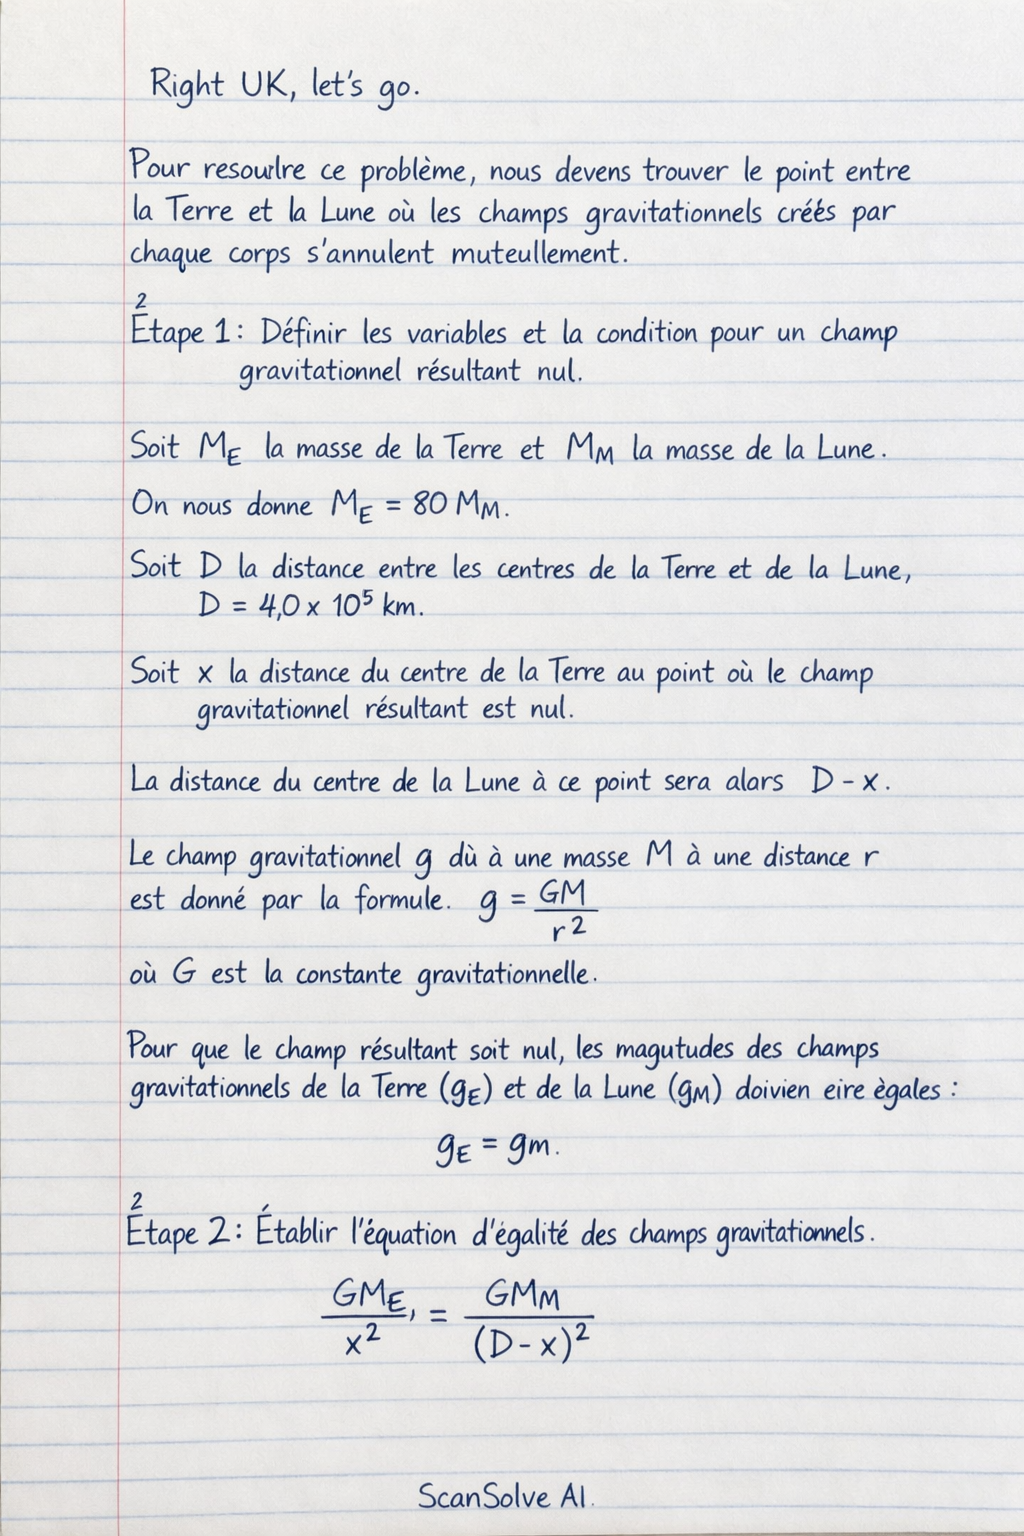 Right UK, let's go.
Pour resourlre ce problème, nous devens trouver le point entre
la Terre et la Lune où les champs gravitationnels créés par
chaque corps s'annulent muteullement.
2
Etape 1: Définir les variables et la condition pour un champ
gravitationnel résultant nul.
Soit M_E la masse de la Terre et M_M la masse de la Lune.
On nous donne M_E = 80 M_M.
Soit D la distance entre les centres de la Terre et de la Lune,
D = 4,0 x 10⁵ km.
Soit x la distance du centre de la Terre au point où le champ
gravitationnel résultant est nul.
La distance du centre de la Lune à ce point sera alars D - x.
Le champ gravitationnel g dù à une masse M à une distance r
est donné par la formule. g = GM / r²
où G est la constante gravitationnelle.
Pour que le champ résultant soit nul, les magutudes des champs
gravitationnels de la Terre (g_E) et de la Lune (g_M) doivien eire ègales :
g_E = gm.
2
Etape 2: Établir l'équation d'égalité des champs gravitationnels.
GM_E, / x² = GM_M / (D - x)²
ScanSolve AI.